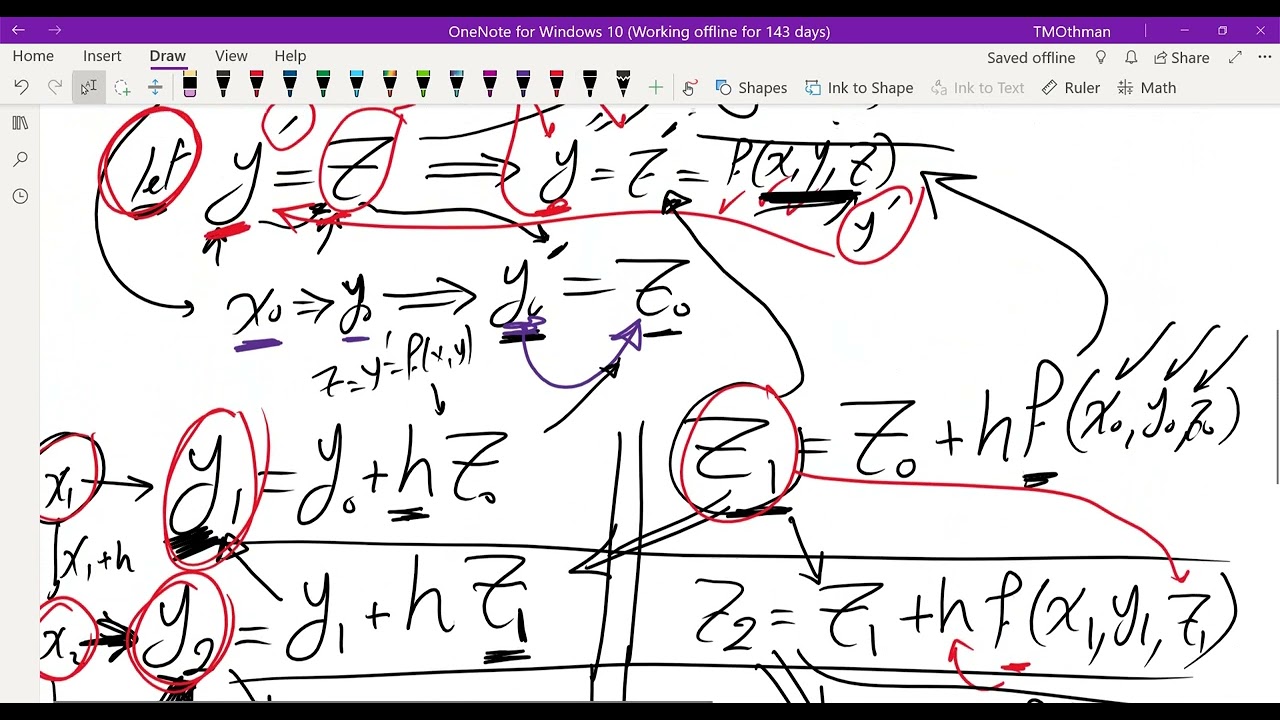 OneNote for Windows 10 (Working offline for 143 days)
TMOthman
Home Insert Draw View Help
Saved offline
Share
Shapes
Ink to Shape
Ink to Text
Ruler
Math
let y' = z ⟹ y'' = z' = f(x, y, z)
y'
x₀ ⇒ y₀ ⟹ y₀' = z₀
z = y' = f(x, y)
x₁ → y₁ = y₀ + h z₀
z₁ = z₀ + h f(x₀, y₀, z₀)
x₁ + h
x₂ → y₂ = y₁ + h z₁
z₂ = z₁ + h f(x₁, y₁, z₁)